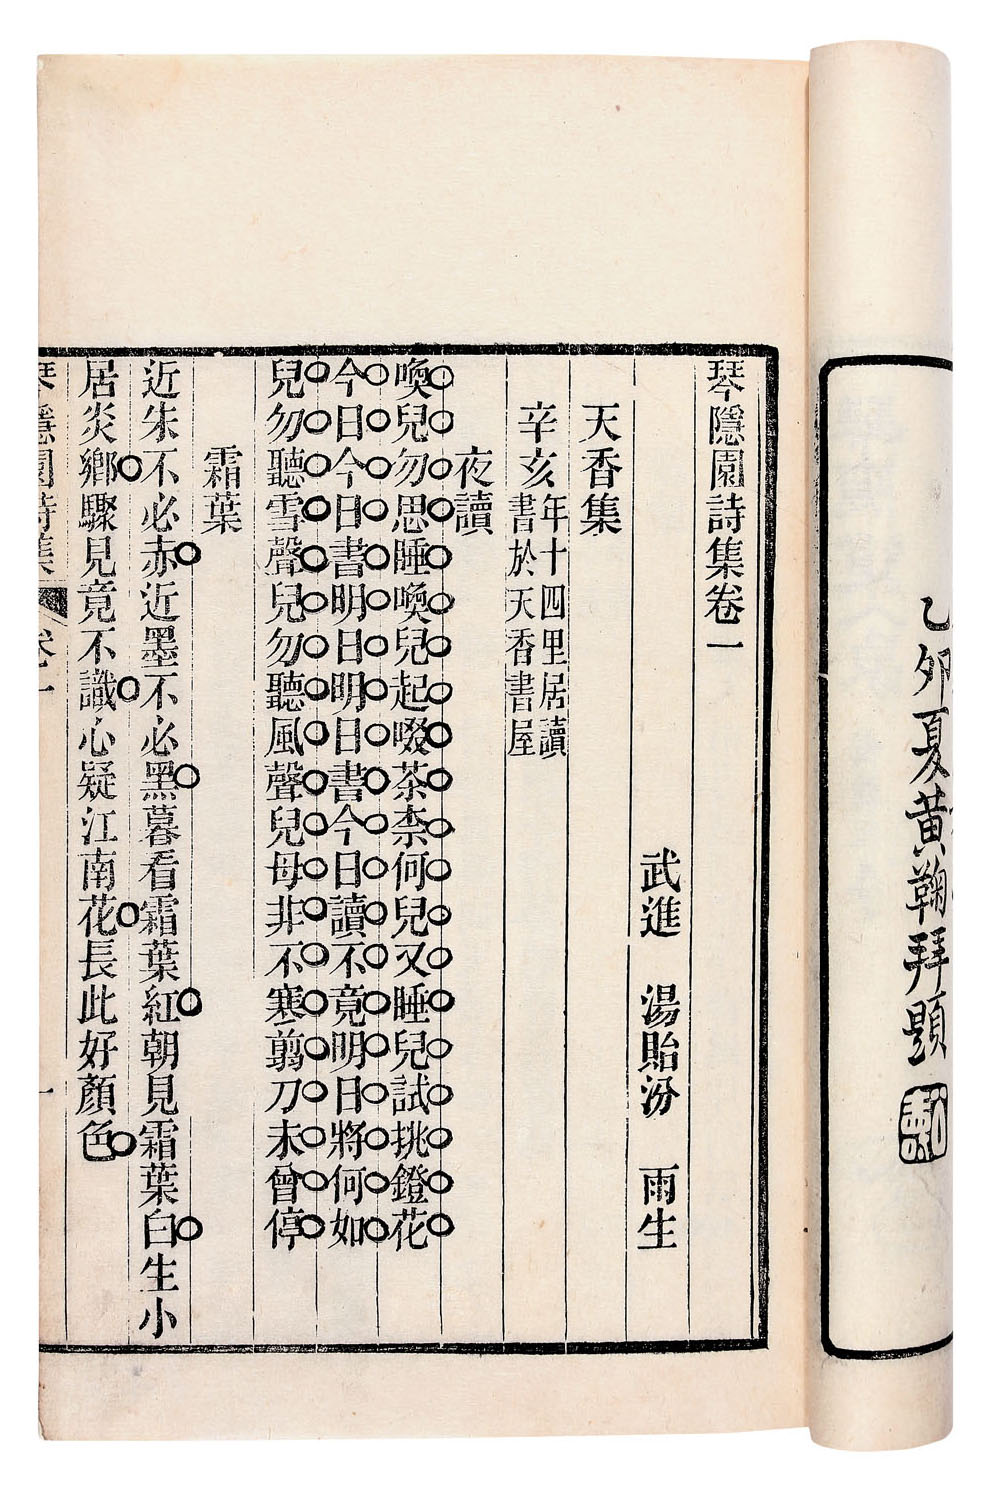 乙卯夏黃鞠拜題
琴隱園詩集卷一
武進 湯貽汾 雨生
天香集
辛亥年十四里居讀書於天香書屋
夜讀
喚兒勿思睡喚兒起啜茶柰何兒又睡兒試挑鐙花
今日今日書明日明日書今日讀不竟明日將何如
兒勿聽雪聲兒勿聽風聲兒母非不寒翦刀未曾停
霜葉
近朱不必赤近墨不必黑暮看霜葉紅朝見霜葉白生小
居炎鄉驟見竟不識心疑江南花長此好顏色
琴隱園詩集 卷一 一